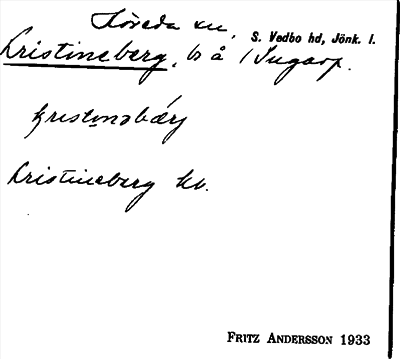 Lövedа sn, S. Vedbo hd, Jönk. l.
Kristineberg, b å 1 Ingarp.
kristinabärj
Kristineberg kb.
FRITZ ANDERSSON 1933